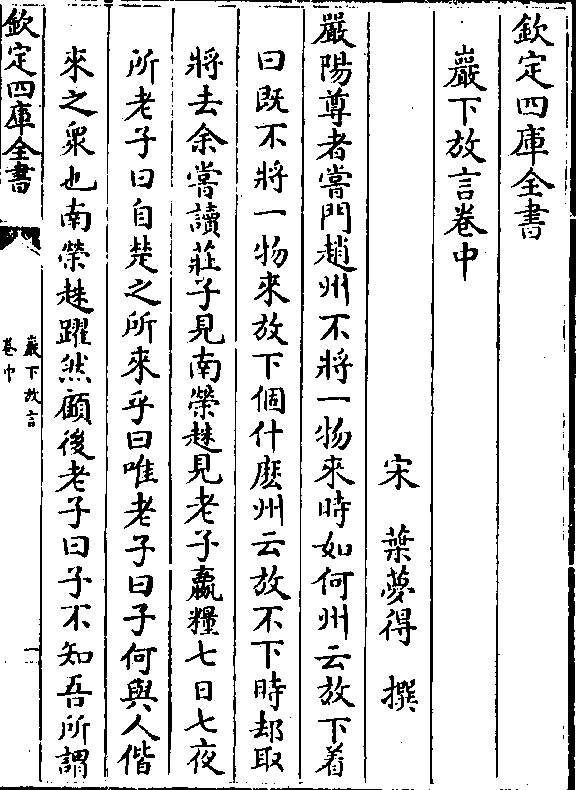 欽定四庫全書
巖下放言卷中
宋 葉夢得 撰
嚴陽尊者嘗門趙州不將一物來時如何州云放下着
曰既不將一物來放下個什麽州云放不下時却取
將去余嘗讀莊子見南榮趎見老子贏糧七日七夜
所老子曰自楚之所來乎曰唯老子曰子何與人偕
來之衆也南榮趎躍然顧後老子曰子不知吾所謂
欽定四庫全書
巖下放言
卷中
一